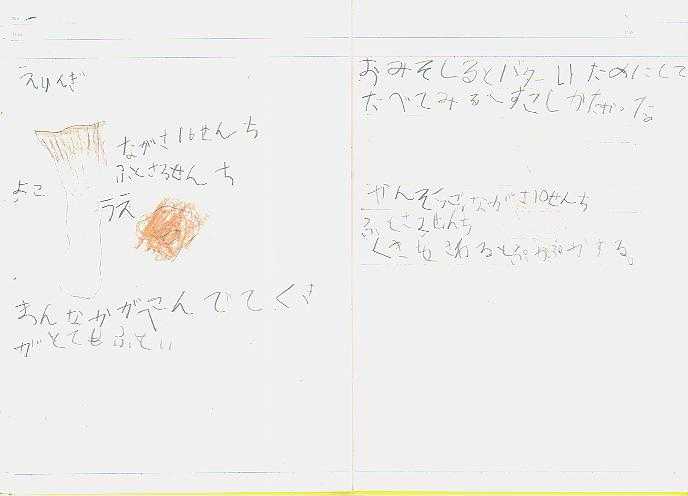 えりんぎ
ながさ16せんち
ふとさ3せんち
よこ
うえ
まんなかがへこんでてくき
がとてもふとい
おみそしるとバターいためにして
たべてみるとすこしかたかった。
かんそうごながさ10せんち
ふとさ2せんち
くきをさわると
する。